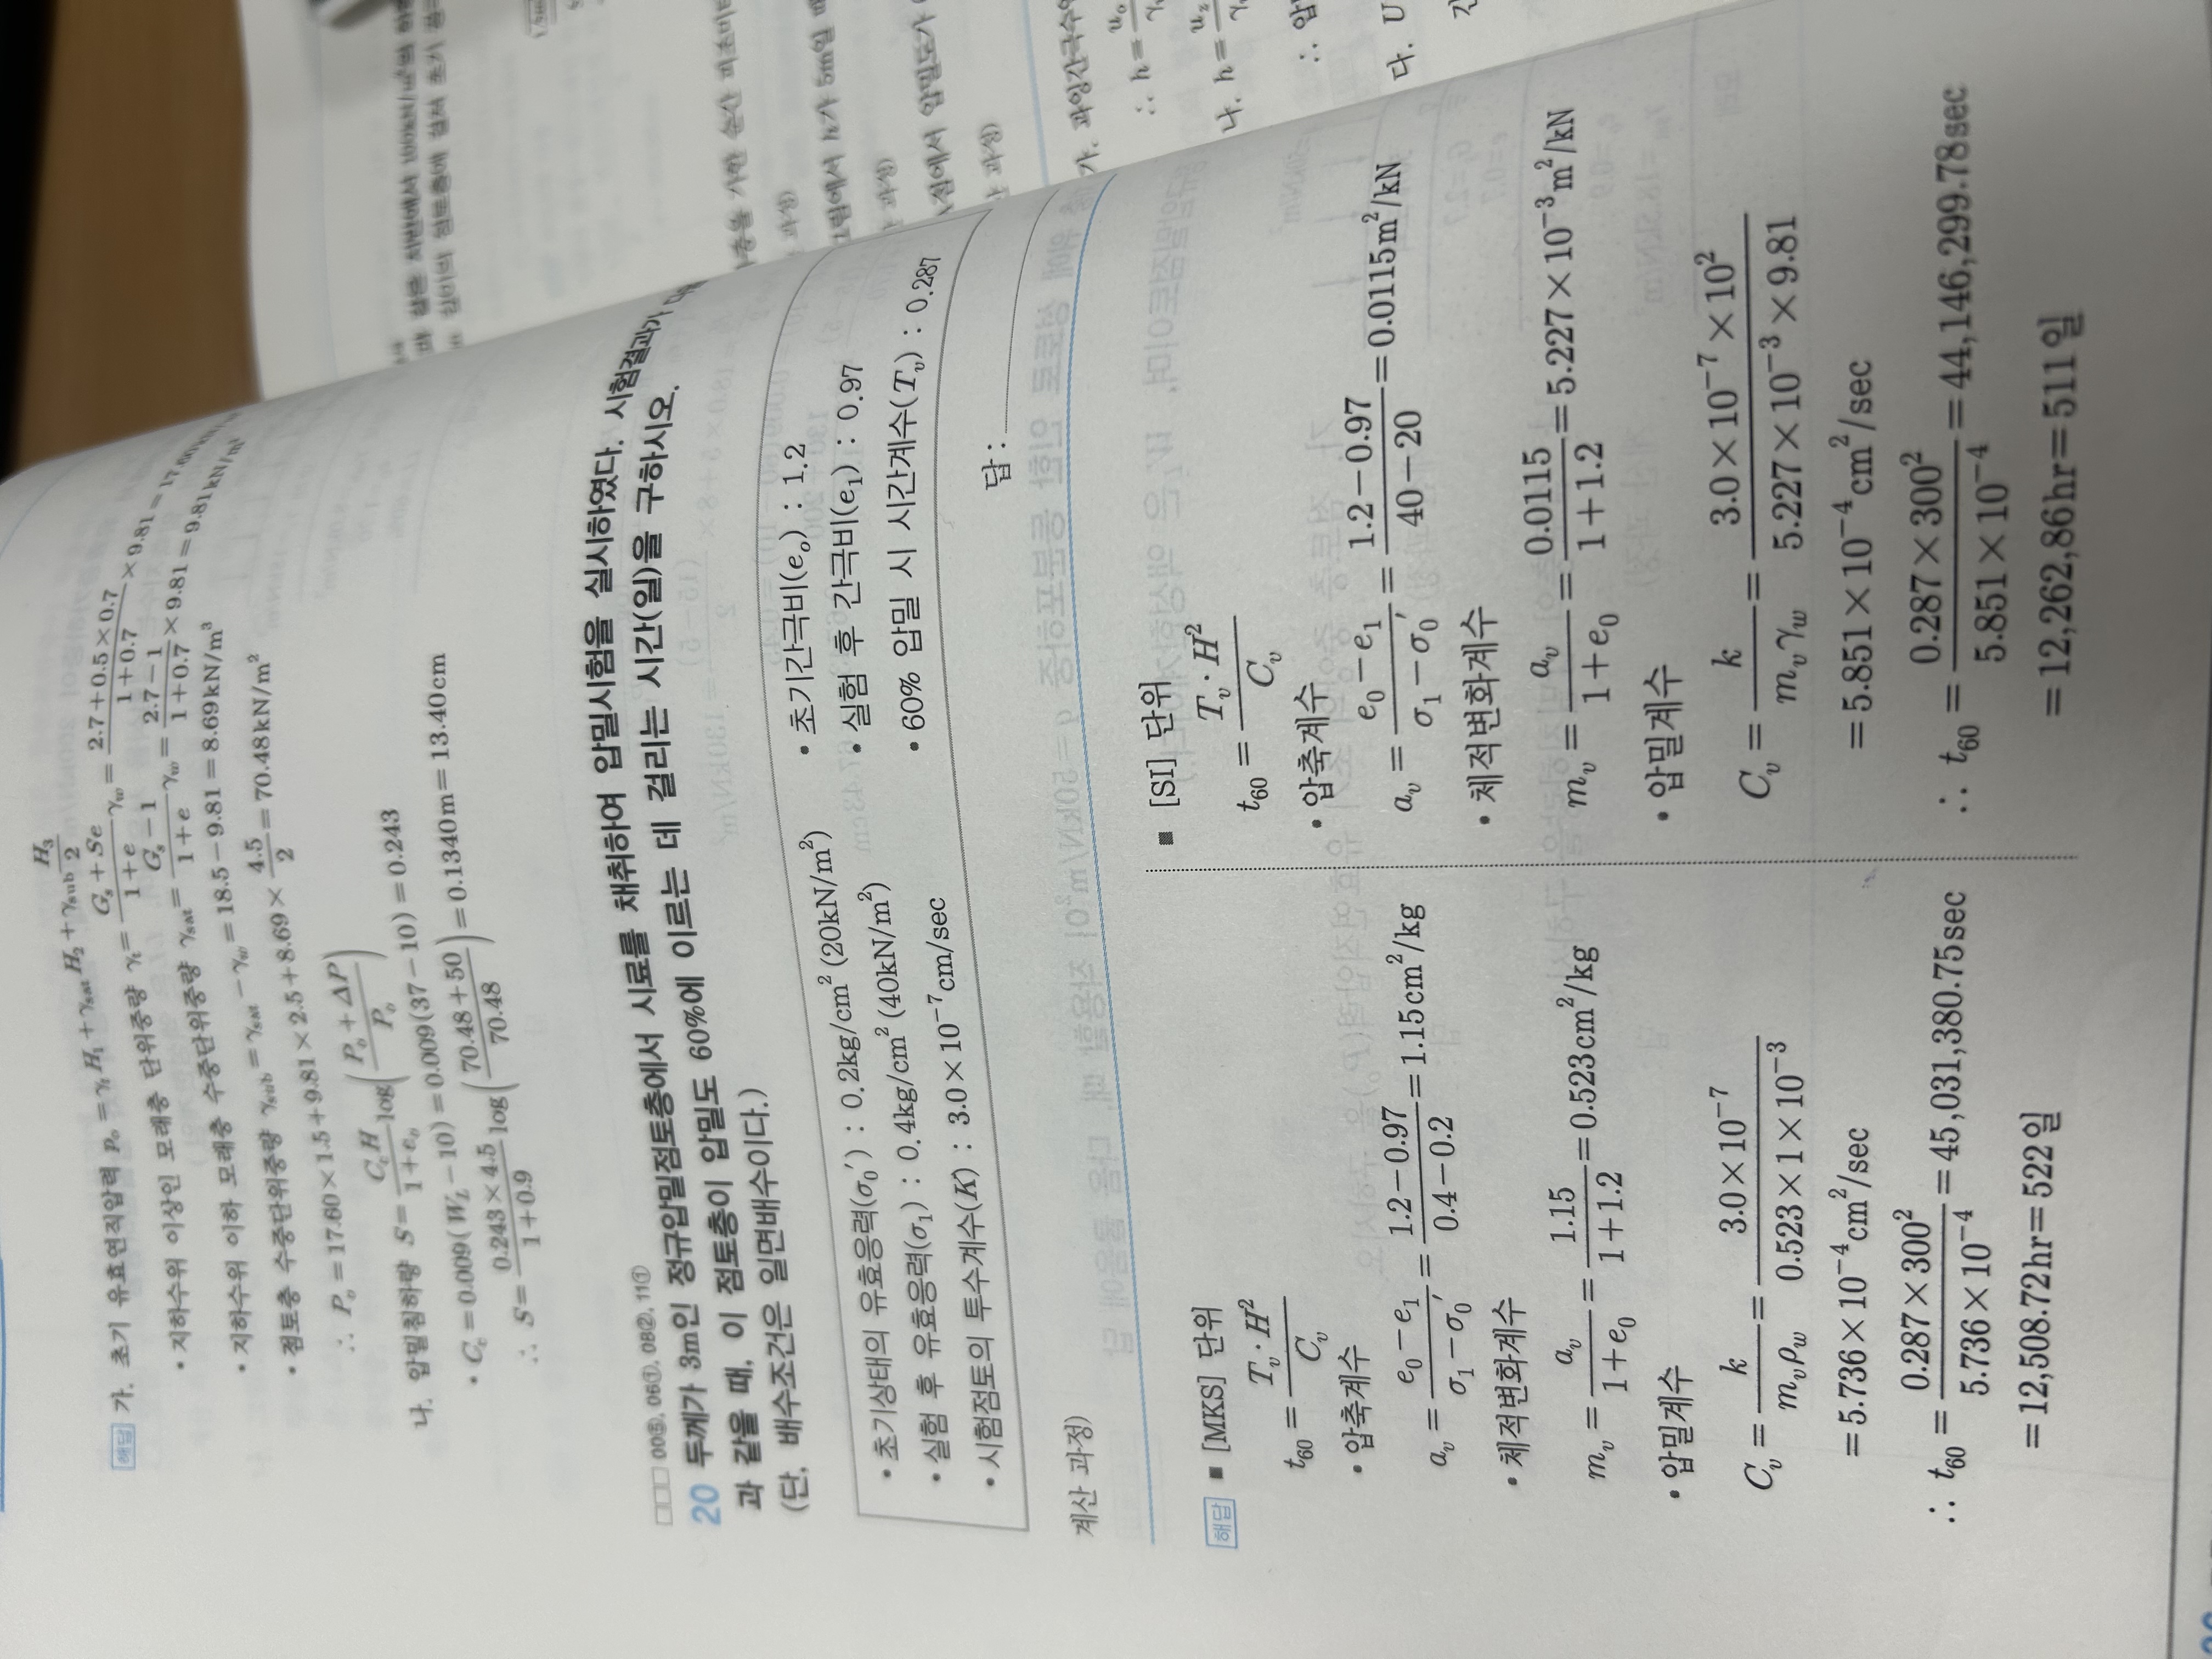 H₃
+γ_sub 2
해답 가. 초기 유효연직압력 P_o = γ_t H₁ + γ_sat H₂ + γ_sub H₃/2
• 지하수위 이상인 모래층 단위중량 γ_t = (G_s + Se)/(1+e) γ_w = (2.7+0.5×0.7)/(1+0.7) ×9.81 = 17.60kN/
• 지하수위 이하 모래층 수중단위중량 γ_sat = (G_s − 1)/(1+e) γ_w = (2.7−1)/(1+0.7) ×9.81 = 9.81kN/m³
• 점토층 수중단위중량 γ_sub = γ_sat − γ_w = 18.5 − 9.81 = 8.69kN/m³
∴ P_o = 17.60×1.5+9.81×2.5+8.69× 4.5/2 = 70.48kN/m²
나. 압밀침하량 S = C_c H/(1+e_o) log((P_o + ΔP)/P_o)
• C_c = 0.009(W_L − 10) = 0.009(37−10) = 0.243
∴ S = (0.243×4.5)/(1+0.9) log((70.48+50)/70.48) = 0.1340m = 13.40cm
□□□ 00⑤, 06①, 08②, 11①
20 두께가 3m인 정규압밀점토층에서 시료를 채취하여 압밀시험을 실시하였다. 시험결과가 다음
과 같을 때, 이 점토층이 압밀도 60%에 이르는 데 걸리는 시간(일)을 구하시오.
(단, 배수조건은 일면배수이다.)
• 초기상태의 유효응력(σ₀′) : 0.2kg/cm² (20kN/m²) • 초기간극비(e_o) : 1.2
• 실험 후 유효응력(σ₁) : 0.4kg/cm² (40kN/m²) • 실험 후 간극비(e₁) : 0.97
• 시험점토의 투수계수(K) : 3.0×10⁻⁷cm/sec • 60% 압밀 시 시간계수(T_v) : 0.287
계산 과정) 답 :
해답 ■ [MKS] 단위
t₆₀ = T_v · H²/C_v
• 압축계수
a_v = (e₀ − e₁)/(σ₁ − σ₀′) = (1.2−0.97)/(0.4−0.2) = 1.15cm²/kg
• 체적변화계수
m_v = a_v/(1+e₀) = 1.15/(1+1.2) = 0.523cm²/kg
• 압밀계수
C_v = k/(m_v ρ_w) = (3.0×10⁻⁷)/(0.523×1×10⁻³)
= 5.736×10⁻⁴cm²/sec
∴ t₆₀ = (0.287×300²)/(5.736×10⁻⁴) = 45,031,380.75sec
= 12,508.72hr = 522일
■ [SI] 단위
t₆₀ = T_v · H²/C_v
• 압축계수
a_v = (e₀ − e₁)/(σ₁ − σ₀′) = (1.2−0.97)/(40−20) = 0.0115m²/kN
• 체적변화계수
m_v = a_v/(1+e₀) = 0.0115/(1+1.2) = 5.227×10⁻³m²/kN
• 압밀계수
C_v = k/(m_v γ_w) = (3.0×10⁻⁷×10²)/(5.227×10⁻³×9.81)
= 5.851×10⁻⁴cm²/sec
∴ t₆₀ = (0.287×300²)/(5.851×10⁻⁴) = 44,146,299.78sec
= 12,262,86hr = 511일
가. 과잉간극수
∴ h = u₀/γ
나. h = u_z/γ
∴ 압
다. U